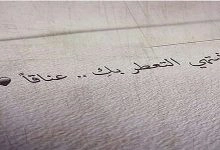 التعطر بك .. عناقاً